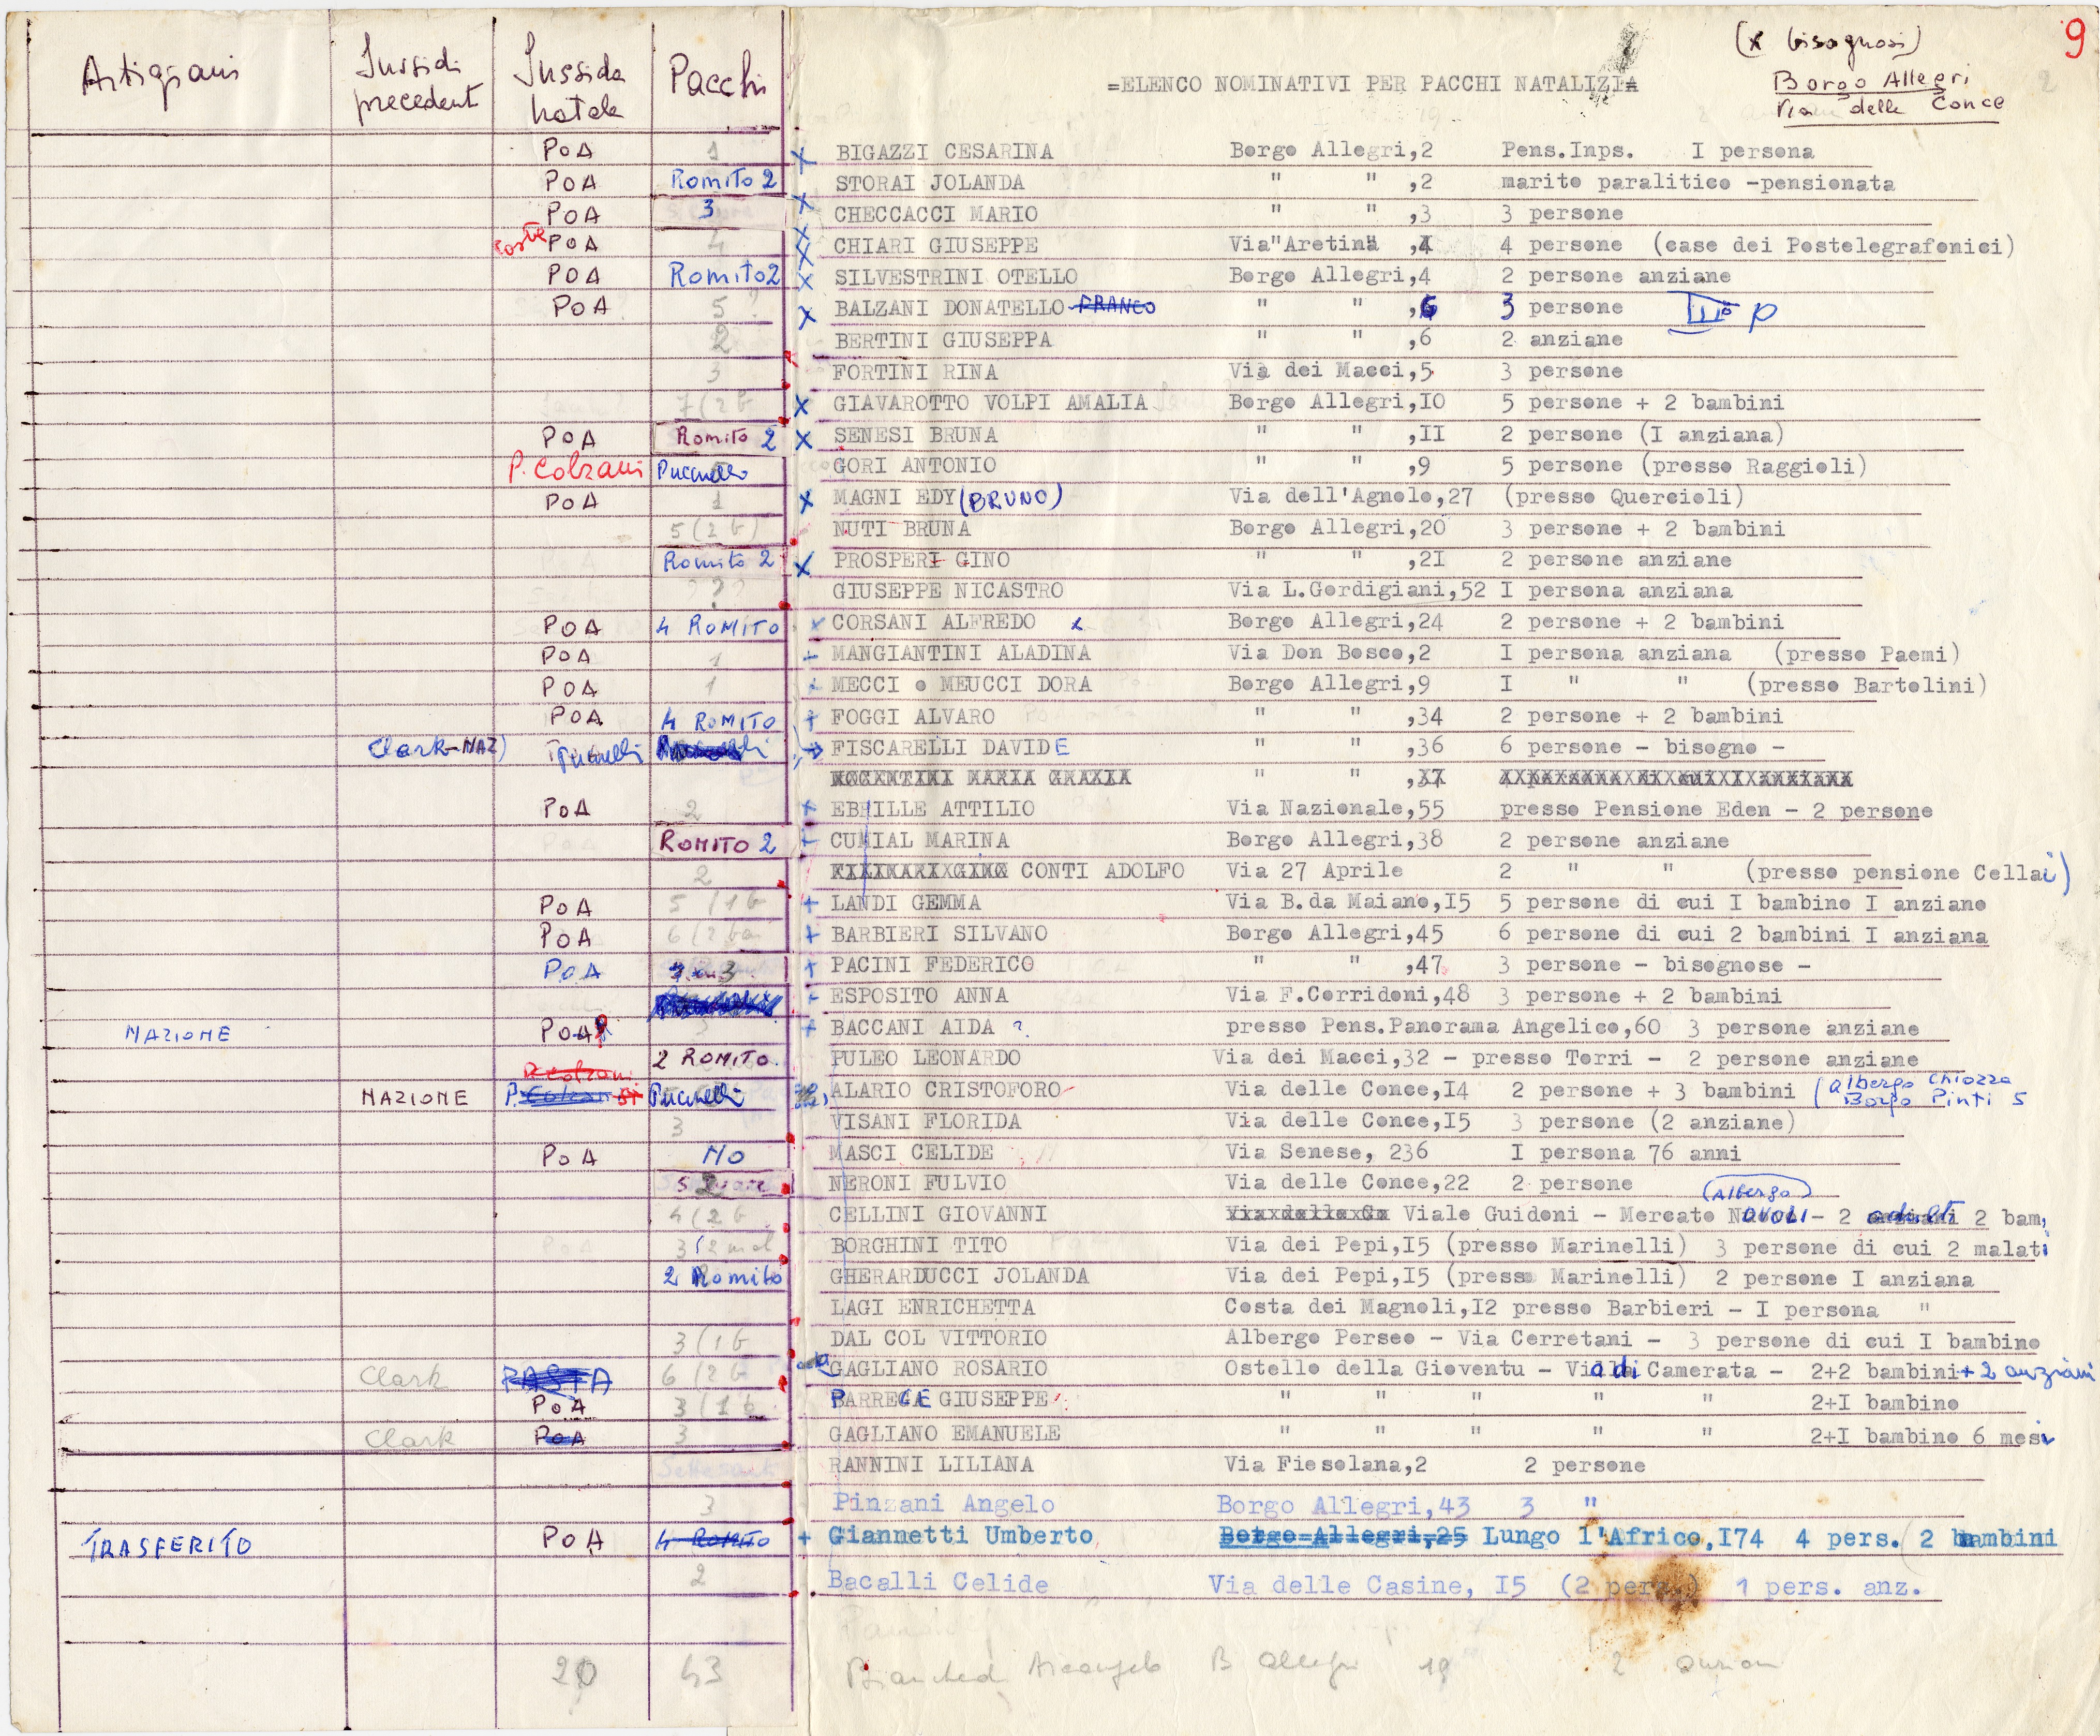 (x bisognosi) 9
Artigiani Sussidi precedenti Sussido natale Pacchi =ELENCO NOMINATIVI PER PACCHI NATALIZI= Borgo Allegri
Via delle Conce 2
POA 1 x BIGAZZI CESARINA Borgo Allegri,2 Pens.Inps. I persona
POA Romito 2 STORAI JOLANDA " " ,2 marito paralitico -pensionata
POA 3 x CHECCACCI MARIO " " ,3 3 persone
POA 4 x CHIARI GIUSEPPE Via"Aretina" ,4 4 persone (case dei Postelegrafonici)
POA Romito 2 x SILVESTRINI OTELLO Borgo Allegri,4 2 persone anziane
POA 5 ? x BALZANI DONATELLO FRANCO " " ,6 3 persone IIIº p
2 BERTINI GIUSEPPA " " ,6 2 anziane
3 FORTINI RINA Via dei Macci,5 3 persone
7 (2 b x GIAVAROTTO VOLPI AMALIA Borgo Allegri,IO 5 persone + 2 bambini
POA Romito 2 x SENESI BRUNA " " ,II 2 persone (I anziana)
P. Colzani Puccinelli GORI ANTONIO " " ,9 5 persone (presso Raggioli)
POA 1 x MAGNI EDY (BRUNO) Via dell'Agnolo,27 (presso Quercioli)
5 (2 b) NUTI BRUNA Borgo Allegri,20 3 persone + 2 bambini
Romito 2 x PROSPERI GINO " " ,2I 2 persone anziane
? GIUSEPPE NICASTRO Via L.Gordigiani,52 I persona anziana
POA 4 ROMITO x CORSANI ALFREDO x Borgo Allegri,24 2 persone + 2 bambini
POA 1 + MANGIANTINI ALADINA Via Don Bosco,2 I persona anziana (presso Paemi)
POA 1 + MECCI o MEUCCI DORA Borgo Allegri,9 I " " (presso Bartolini)
POA 4 ROMITO + FOGGI ALVARO " " ,34 2 persone + 2 bambini
Clark-NAZ) FISCARELLI DAVIDE " " ,36 6 persone - bisogno -
MARIA GRAZIA " "
POA 2 + EBRILLE ATTILIO Via Nazionale,55 presso Pensione Eden - 2 persone
ROMITO 2 + CUNIAL MARINA Borgo Allegri,38 2 persone anziane
2 CONTI ADOLFO Via 27 Aprile 2 " " (presso pensione Cellai)
POA 5 (1 b + LANDI GEMMA Via B.da Maiano,I5 5 persone di cui I bambino I anziano
POA 6 (2 bam + BARBIERI SILVANO Borgo Allegri,45 6 persone di cui 2 bambini I anziana
POA 3 + PACINI FEDERICO " " ,47 3 persone - bisognose -
+ ESPOSITO ANNA Via F.Corridoni,48 3 persone + 2 bambini
NAZIONE POA? 3 + BACCANI AIDA ? presso Pens.Panorama Angelico,60 3 persone anziane
2 ROMITO PULEO LEONARDO Via dei Macci,32 - presso Torri - 2 persone anziane
P. Colzani
NAZIONE P. Colzani si Puccinelli ALARIO CRISTOFORO Via delle Conce,I4 2 persone + 3 bambini (albergo Chiozza Borgo Pinti 5
3 VISANI FLORIDA Via delle Conce,I5 3 persone (2 anziane)
POA NO MASCI CELIDE Via Senese, 236 I persona 76 anni
2 NERONI FULVIO Via delle Conce,22 2 persone
(Albergo)
4 (2 b CELLINI GIOVANNI Viale Guidoni - Mercato NOVOLI - 2 adulti 2 bam,
3 (2 mal BORGHINI TITO Via dei Pepi,I5 (presso Marinelli) 3 persone di cui 2 malati
2 Romito GHERARDUCCI JOLANDA Via dei Pepi,I5 (presso Marinelli) 2 persone I anziana
LAGI ENRICHETTA Costa dei Magnoli,I2 presso Barbieri - I persona "
3 (1 b DAL COL VITTORIO Albergo Perseo - Via Cerretani - 3 persone di cui I bambino
Clark PASTA 6 (2 b GAGLIANO ROSARIO Ostello della Gioventu - Villa di Camerata - 2+2 bambini +2 anziani
POA 3 (1 b BARRECE GIUSEPPE " " " " " 2+I bambino
Clark POA 3 GAGLIANO EMANUELE " " " " " 2+I bambino 6 mesi
RANNINI LILIANA Via Fiesolana,2 2 persone
3 Pinzani Angelo Borgo Allegri,43 3 "
TRASFERITO POA 4 ROMITO + Giannetti Umberto Borgo Allegri,25 Lungo l'Africo,I74 4 pers. (2 bambini
2 Bacalli Celide Via delle Casine, I5 (2 pers.) 1 pers. anz.
20 43 Arcangelo B Allegri 19 2 anziani